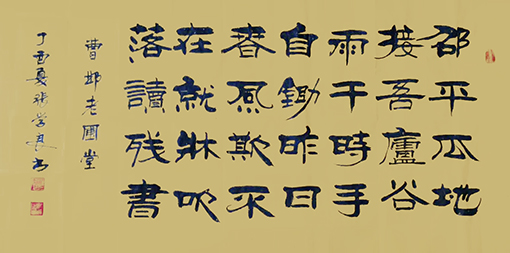 邵平瓜地
接吾廬谷
雨干時手
自鋤昨日
春风欺不
在就牀吹
落讀残書
曹邺老圃堂
丁酉夏